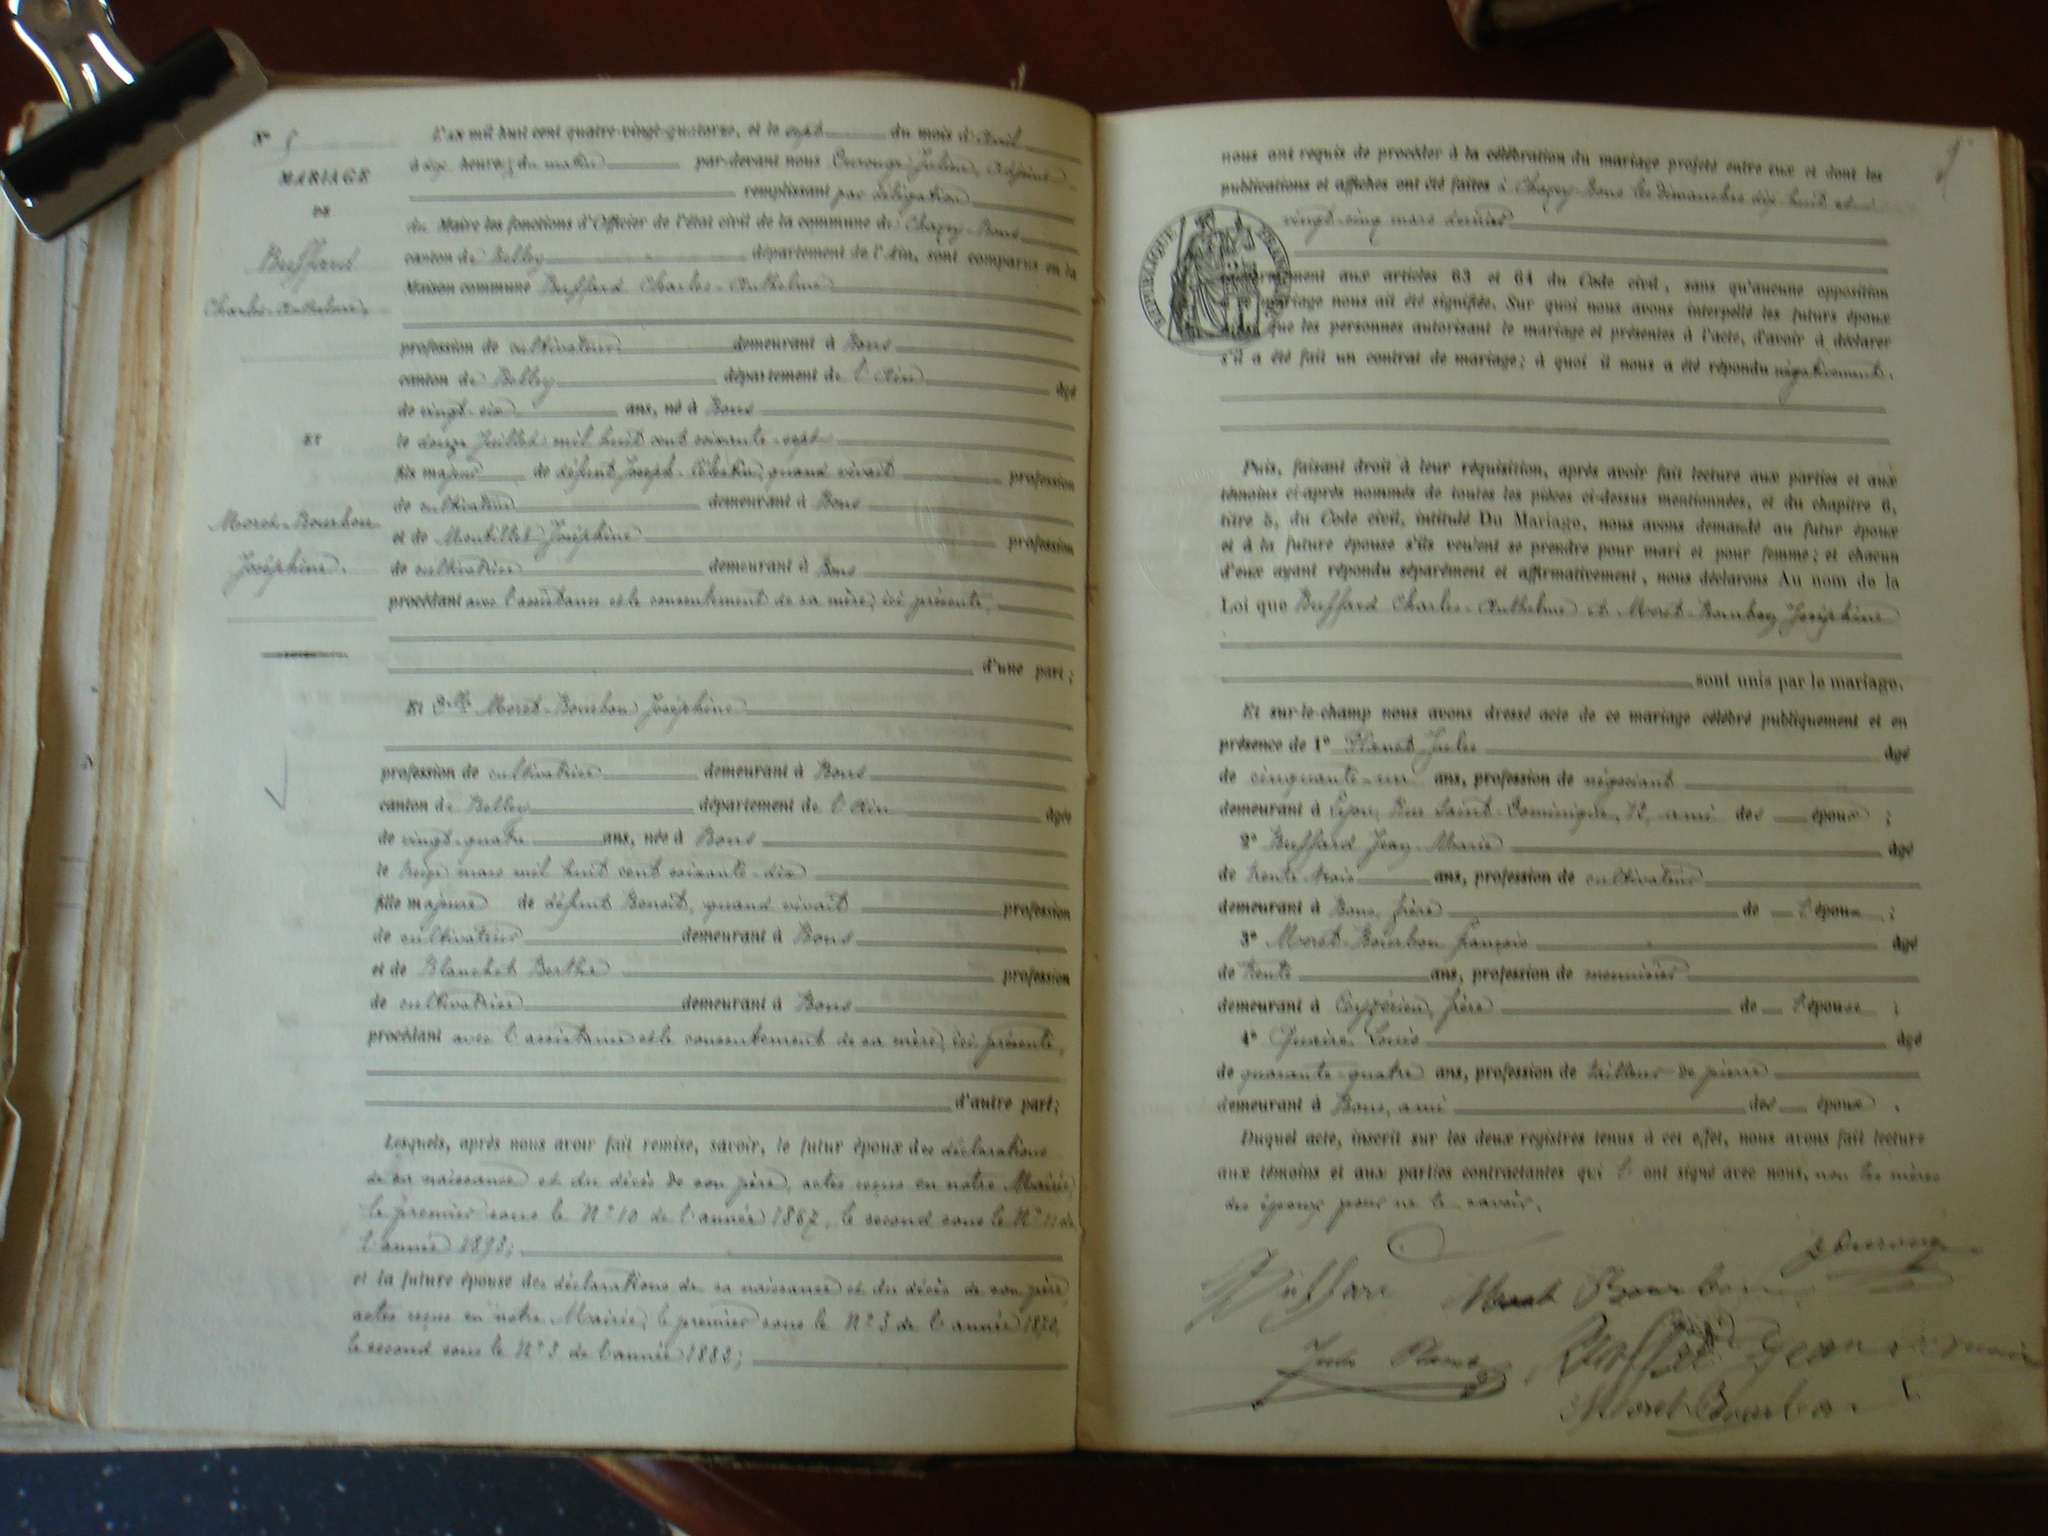 N° 5
MARIAGE
DE
Buffard
Charles-Anthelme,
ET
Moret-Bourbon
Joséphine.
L'an mil huit cent quatre-vingt-quatorze, et le sept du mois d'Avril
à heures du matin par-devant nous Julien, Adjoint
remplissant par délégation
du Maire les fonctions d'Officier de l'état civil de la commune de Chazey-Bons
canton de Belley département de l'Ain, sont comparus en la
Maison commune Buffard Charles-Anthelme
profession de cultivateur demeurant à Bons
canton de Belley département de l'Ain âgé
de vingt-six ans, né à Bons
le douze Juillet mil huit cent soixante-sept
fils majeur de défunt Joseph-Célestin, quand vivait profession
de cultivateur demeurant à Bons
et de Montillet Joséphine profession
de cultivatrice demeurant à Bons
procédant avec l'assistance et le consentement de sa mère, ici présente,
d'une part;
Et Dlle Moret-Bourbon Joséphine
profession de cultivatrice demeurant à Bons
canton de Belley département de l'Ain âgée
de vingt-quatre ans, née à Bons
le treize mars mil huit cent soixante-dix
fille majeure de défunt Benoît, quand vivait profession
de cultivateur demeurant à Bons
et de Blanchet Berthe profession
de cultivatrice demeurant à Bons
procédant avec l'assistance et le consentement de sa mère, ici présente,
d'autre part;
Lesquels, après nous avoir fait remise, savoir, le futur époux des déclarations
de sa naissance et du décès de son père, actes reçus en notre Mairie,
le premier sous le N° 10 de l'année 1867, le second sous le N° 11 de
l'année 1893;
et la future épouse des déclarations de sa naissance et du décès de son père,
actes reçus en notre Mairie, le premier sous le N° 3 de l'année 1870,
le second sous le N° 3 de l'année 1883;
nous ont requis de procéder à la célébration du mariage projeté entre eux et dont les
publications et affiches ont été faites à Chazey-Bons les dimanches dix-huit et
vingt-cinq mars dernier
RÉPUBLIQUE FRANÇAISE
aux articles 63 et 64 du Code civil, sans qu'aucune opposition
mariage nous ait été signifiée. Sur quoi nous avons interpellé les futurs époux
que les personnes autorisant le mariage et présentes à l'acte, d'avoir à déclarer
s'il a été fait un contrat de mariage; à quoi il nous a été répondu négativement.
Puis, faisant droit à leur réquisition, après avoir fait lecture aux parties et aux
témoins ci-après nommés de toutes les pièces ci-dessus mentionnées, et du chapitre 6,
titre 5, du Code civil, intitulé Du Mariage, nous avons demandé au futur époux
et à la future épouse s'ils veulent se prendre pour mari et pour femme; et chacun
d'eux ayant répondu séparément et affirmativement, nous déclarons Au nom de la
Loi que Buffard Charles-Anthelme et Moret-Bourbon Joséphine
sont unis par le mariage.
Et sur-le-champ nous avons dressé acte de ce mariage célébré publiquement et en
présence de 1° Jules âgé
de cinquante-un ans, profession de négociant
demeurant à Lyon, Rue Saint-Dominique, ami des époux;
2° Buffard Jean-Marie âgé
de trente-trois ans, profession de cultivateur
demeurant à Bons, frère de l'époux;
3° Moret-Bourbon François âgé
de trente ans, profession de menuisier
demeurant à Ceyzérieu, frère de l'épouse;
4° Louis âgé
de quarante-quatre ans, profession de tailleur de pierre
demeurant à Bons, ami des époux.
Duquel acte, inscrit sur les deux registres tenus à cet effet, nous avons fait lecture
aux témoins et aux parties contractantes qui l'ont signé avec nous, non les mères
des époux pour ne le savoir.
Buffard Moret Bourbon
Buffard Jean Marie
Moret Bourbon